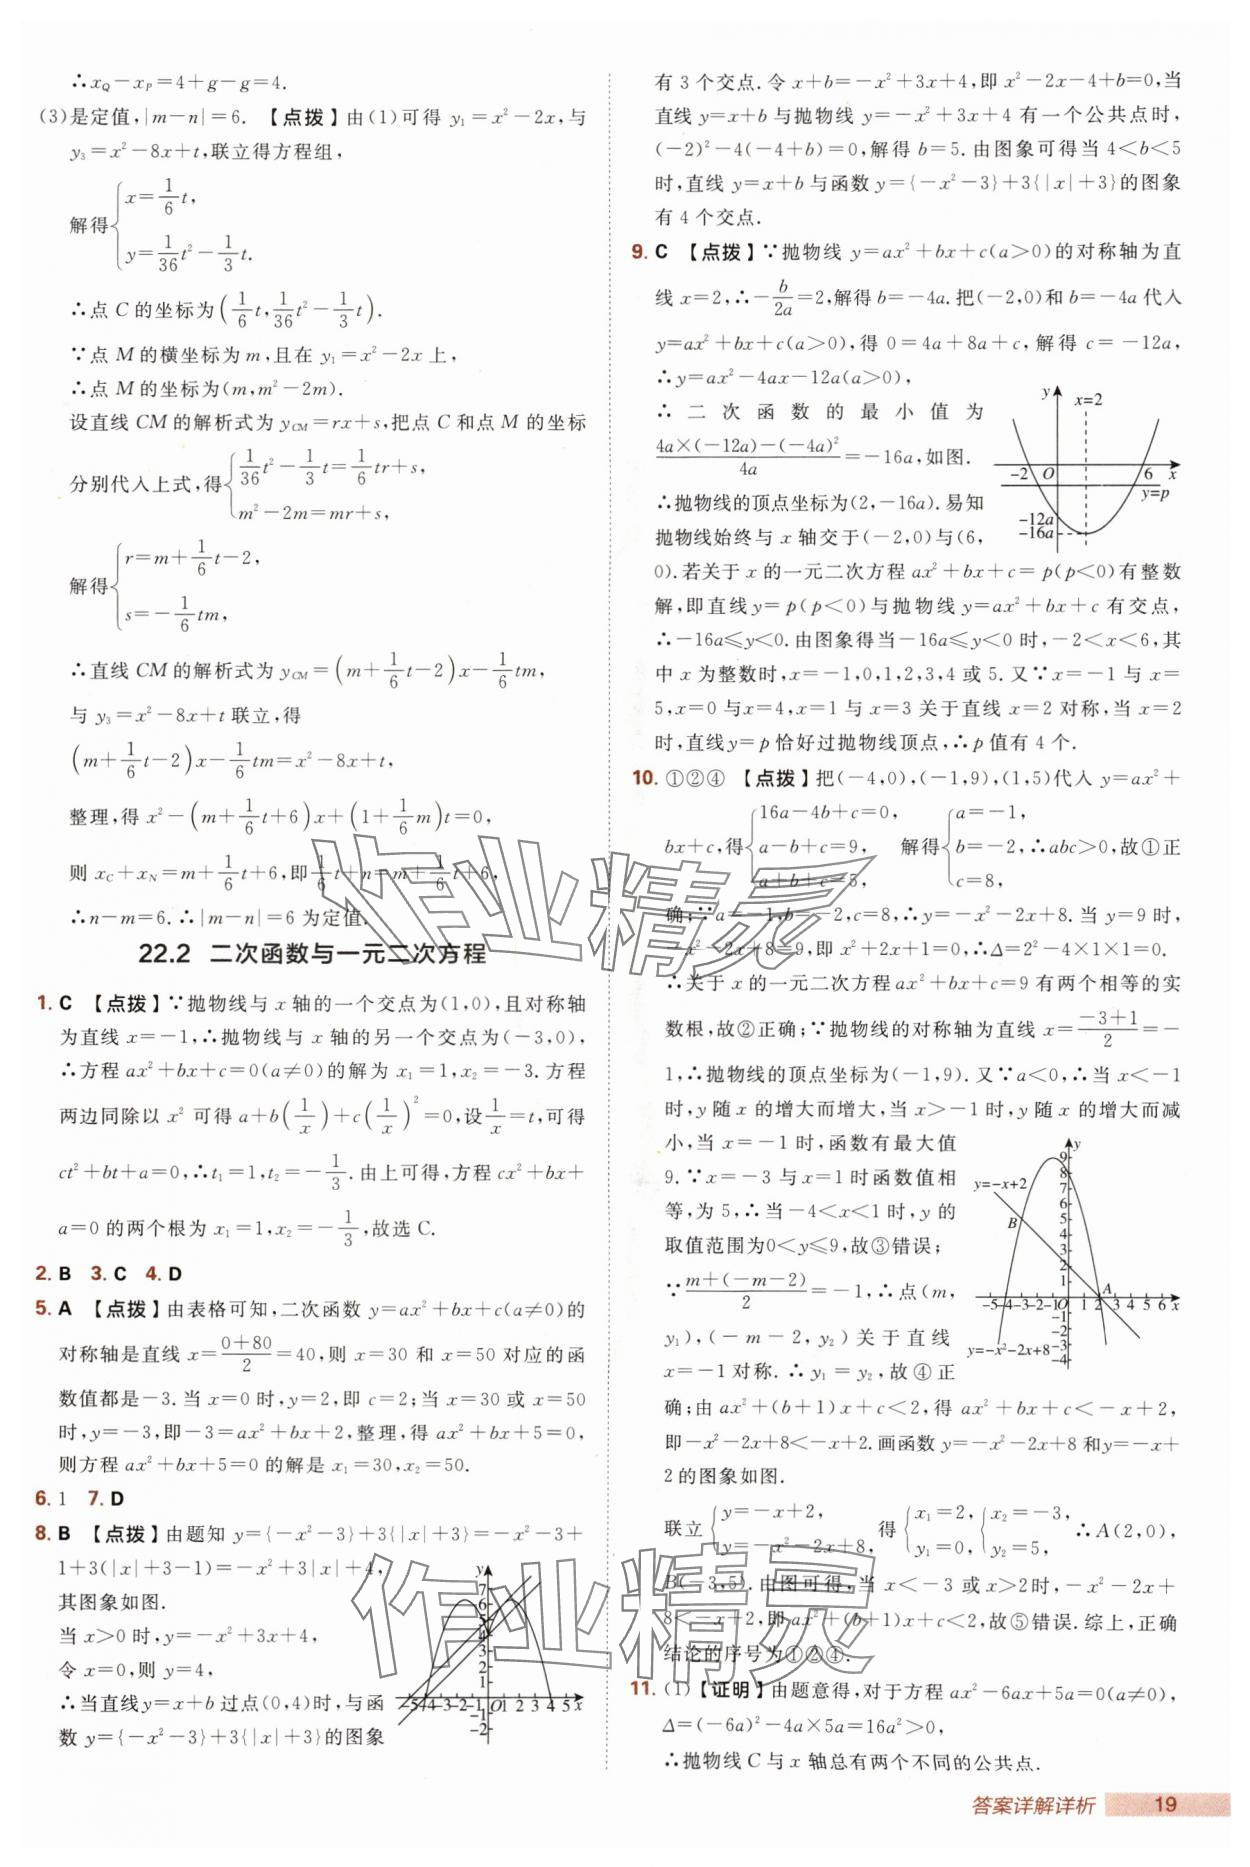 ∴x_Q－x_P＝4＋g－g＝4.
(3)是定值,|m－n|＝6. 【点拨】由(1)可得 y₁＝x²－2x,与
y₃＝x²－8x＋t,联立得方程组,
解得{x＝1/6 t,
y＝1/36 t²－1/3 t.
∴点 C 的坐标为(1/6 t,1/36 t²－1/3 t).
∵点 M 的横坐标为 m,且在 y₁＝x²－2x 上,
∴点 M 的坐标为(m,m²－2m).
设直线 CM 的解析式为 y_CM＝rx＋s,把点 C 和点 M 的坐标
分别代入上式,得{1/36 t²－1/3 t＝1/6 tr＋s,
m²－2m＝mr＋s,
解得{r＝m＋1/6 t－2,
s＝－1/6 tm,
∴直线 CM 的解析式为 y_CM＝(m＋1/6 t－2)x－1/6 tm,
与 y₃＝x²－8x＋t 联立,得
(m＋1/6 t－2)x－1/6 tm＝x²－8x＋t,
整理,得 x²－(m＋1/6 t＋6)x＋(1＋1/6 m)t＝0,
则 x_C＋x_N＝m＋1/6 t＋6,即1/6 t＋n＝m＋1/6 t＋6,
∴n－m＝6.∴|m－n|＝6 为定值.
22.2 二次函数与一元二次方程
1. C 【点拨】∵抛物线与 x 轴的一个交点为(1,0),且对称轴
为直线 x＝－1,∴抛物线与 x 轴的另一个交点为(－3,0),
∴方程 ax²＋bx＋c＝0(a≠0)的解为 x₁＝1,x₂＝－3.方程
两边同除以 x² 可得 a＋b(1/x)＋c(1/x)²＝0,设1/x＝t,可得
ct²＋bt＋a＝0,∴t₁＝1,t₂＝－1/3.由上可得,方程 cx²＋bx＋
a＝0 的两个根为 x₁＝1,x₂＝－1/3,故选 C.
2. B 3. C 4. D
5. A 【点拨】由表格可知,二次函数 y＝ax²＋bx＋c(a≠0)的
对称轴是直线 x＝(0＋80)/2＝40,则 x＝30 和 x＝50 对应的函
数值都是－3.当 x＝0 时,y＝2,即 c＝2;当 x＝30 或 x＝50
时,y＝－3,即－3＝ax²＋bx＋2,整理,得 ax²＋bx＋5＝0,
则方程 ax²＋bx＋5＝0 的解是 x₁＝30,x₂＝50.
6. 1 7. D
8. B 【点拨】由题知 y＝{－x²－3}＋3{|x|＋3}＝－x²－3＋
1＋3(|x|＋3－1)＝－x²＋3|x|＋4,
其图象如图.
当 x＞0 时,y＝－x²＋3x＋4,
令 x＝0,则 y＝4,
∴当直线y＝x＋b 过点(0,4)时,与函
数 y＝{－x²－3}＋3{|x|＋3}的图象
y
7
6
5
4
3
2
1
-5-4-3-2-1 O 1 2 3 4 5 x
-1
-2
有 3 个交点.令 x＋b＝－x²＋3x＋4,即 x²－2x－4＋b＝0,当
直线 y＝x＋b 与抛物线 y＝－x²＋3x＋4 有一个公共点时,
(－2)²－4(－4＋b)＝0,解得 b＝5.由图象可得当 4＜b＜5
时,直线 y＝x＋b 与函数 y＝{－x²－3}＋3{|x|＋3}的图象
有 4 个交点.
9. C 【点拨】∵抛物线 y＝ax²＋bx＋c(a＞0)的对称轴为直
线 x＝2,∴－b/2a＝2,解得 b＝－4a.把(－2,0)和 b＝－4a 代入
y＝ax²＋bx＋c(a＞0),得 0＝4a＋8a＋c,解得 c＝－12a,
∴y＝ax²－4ax－12a(a＞0),
∴二次函数的最小值为
(4a×(－12a)－(－4a)²)/4a＝－16a,如图.
∴抛物线的顶点坐标为(2,－16a).易知
抛物线始终与 x 轴交于(－2,0)与(6,
y
x=2
-2 O 6 x
y=p
-12a
-16a
0).若关于 x 的一元二次方程 ax²＋bx＋c＝p(p＜0)有整数
解,即直线y＝p(p＜0)与抛物线 y＝ax²＋bx＋c 有交点,
∴－16a≤y＜0.由图象得当－16a≤y＜0 时,－2＜x＜6,其
中 x 为整数时,x＝－1,0,1,2,3,4 或 5.又∵x＝－1 与 x＝
5,x＝0 与x＝4,x＝1 与 x＝3 关于直线 x＝2 对称,当 x＝2
时,直线y＝p 恰好过抛物线顶点,∴p 值有 4 个.
10. ①②④ 【点拨】把(－4,0),(－1,9),(1,5)代入 y＝ax²＋
bx＋c,得{16a－4b＋c＝0,
a－b＋c＝9,
a＋b＋c＝5,
解得{a＝－1,
b＝－2,
c＝8,
∴abc＞0,故①正
确;∵a＝－1,b＝－2,c＝8,∴y＝－x²－2x＋8.当 y＝9 时,
－x²－2x＋8＝9,即 x²＋2x＋1＝0,∴Δ＝2²－4×1×1＝0.
∴关于 x 的一元二次方程 ax²＋bx＋c＝9 有两个相等的实
数根,故②正确;∵抛物线的对称轴为直线 x＝(－3＋1)/2＝－
1,∴抛物线的顶点坐标为(－1,9).又∵a＜0,∴当 x＜－1
时,y 随 x 的增大而增大,当 x＞－1 时,y 随 x 的增大而减
小,当 x＝－1 时,函数有最大值
9.∵x＝－3 与 x＝1 时函数值相
等,为 5,∴当－4＜x＜1 时,y 的
取值范围为0＜y≤9,故③错误;
∵(m＋(－m－2))/2＝－1,∴点(m,
y₁),(－m－2,y₂)关于直线
x＝－1 对称.∴y₁＝y₂,故④正
y
9
8
7
6
5
4
3
2
1
y=-x+2
B
A
-5-4-3-2-1 O 1 2 3 4 5 6 x
-1
-2
-3
-4
y=-x²-2x+8
确;由 ax²＋(b＋1)x＋c＜2,得 ax²＋bx＋c＜－x＋2,
即－x²－2x＋8＜－x＋2.画函数 y＝－x²－2x＋8 和y＝－x＋
2 的图象如图.
联立{y＝－x＋2,
y＝－x²－2x＋8,
得{x₁＝2,
y₁＝0,
{x₂＝－3,
y₂＝5,
∴A(2,0),
B(－3,5).由图可得,当 x＜－3 或 x＞2时,－x²－2x＋
8＜－x＋2,即 ax²＋(b＋1)x＋c＜2,故⑤错误.综上,正确
结论的序号为①②④.
11. (1)【证明】由题意得,对于方程 ax²－6ax＋5a＝0(a≠0),
Δ＝(－6a)²－4a×5a＝16a²＞0,
∴抛物线 C 与 x 轴总有两个不同的公共点.
作业精灵
作业精灵
答案详解详析 19